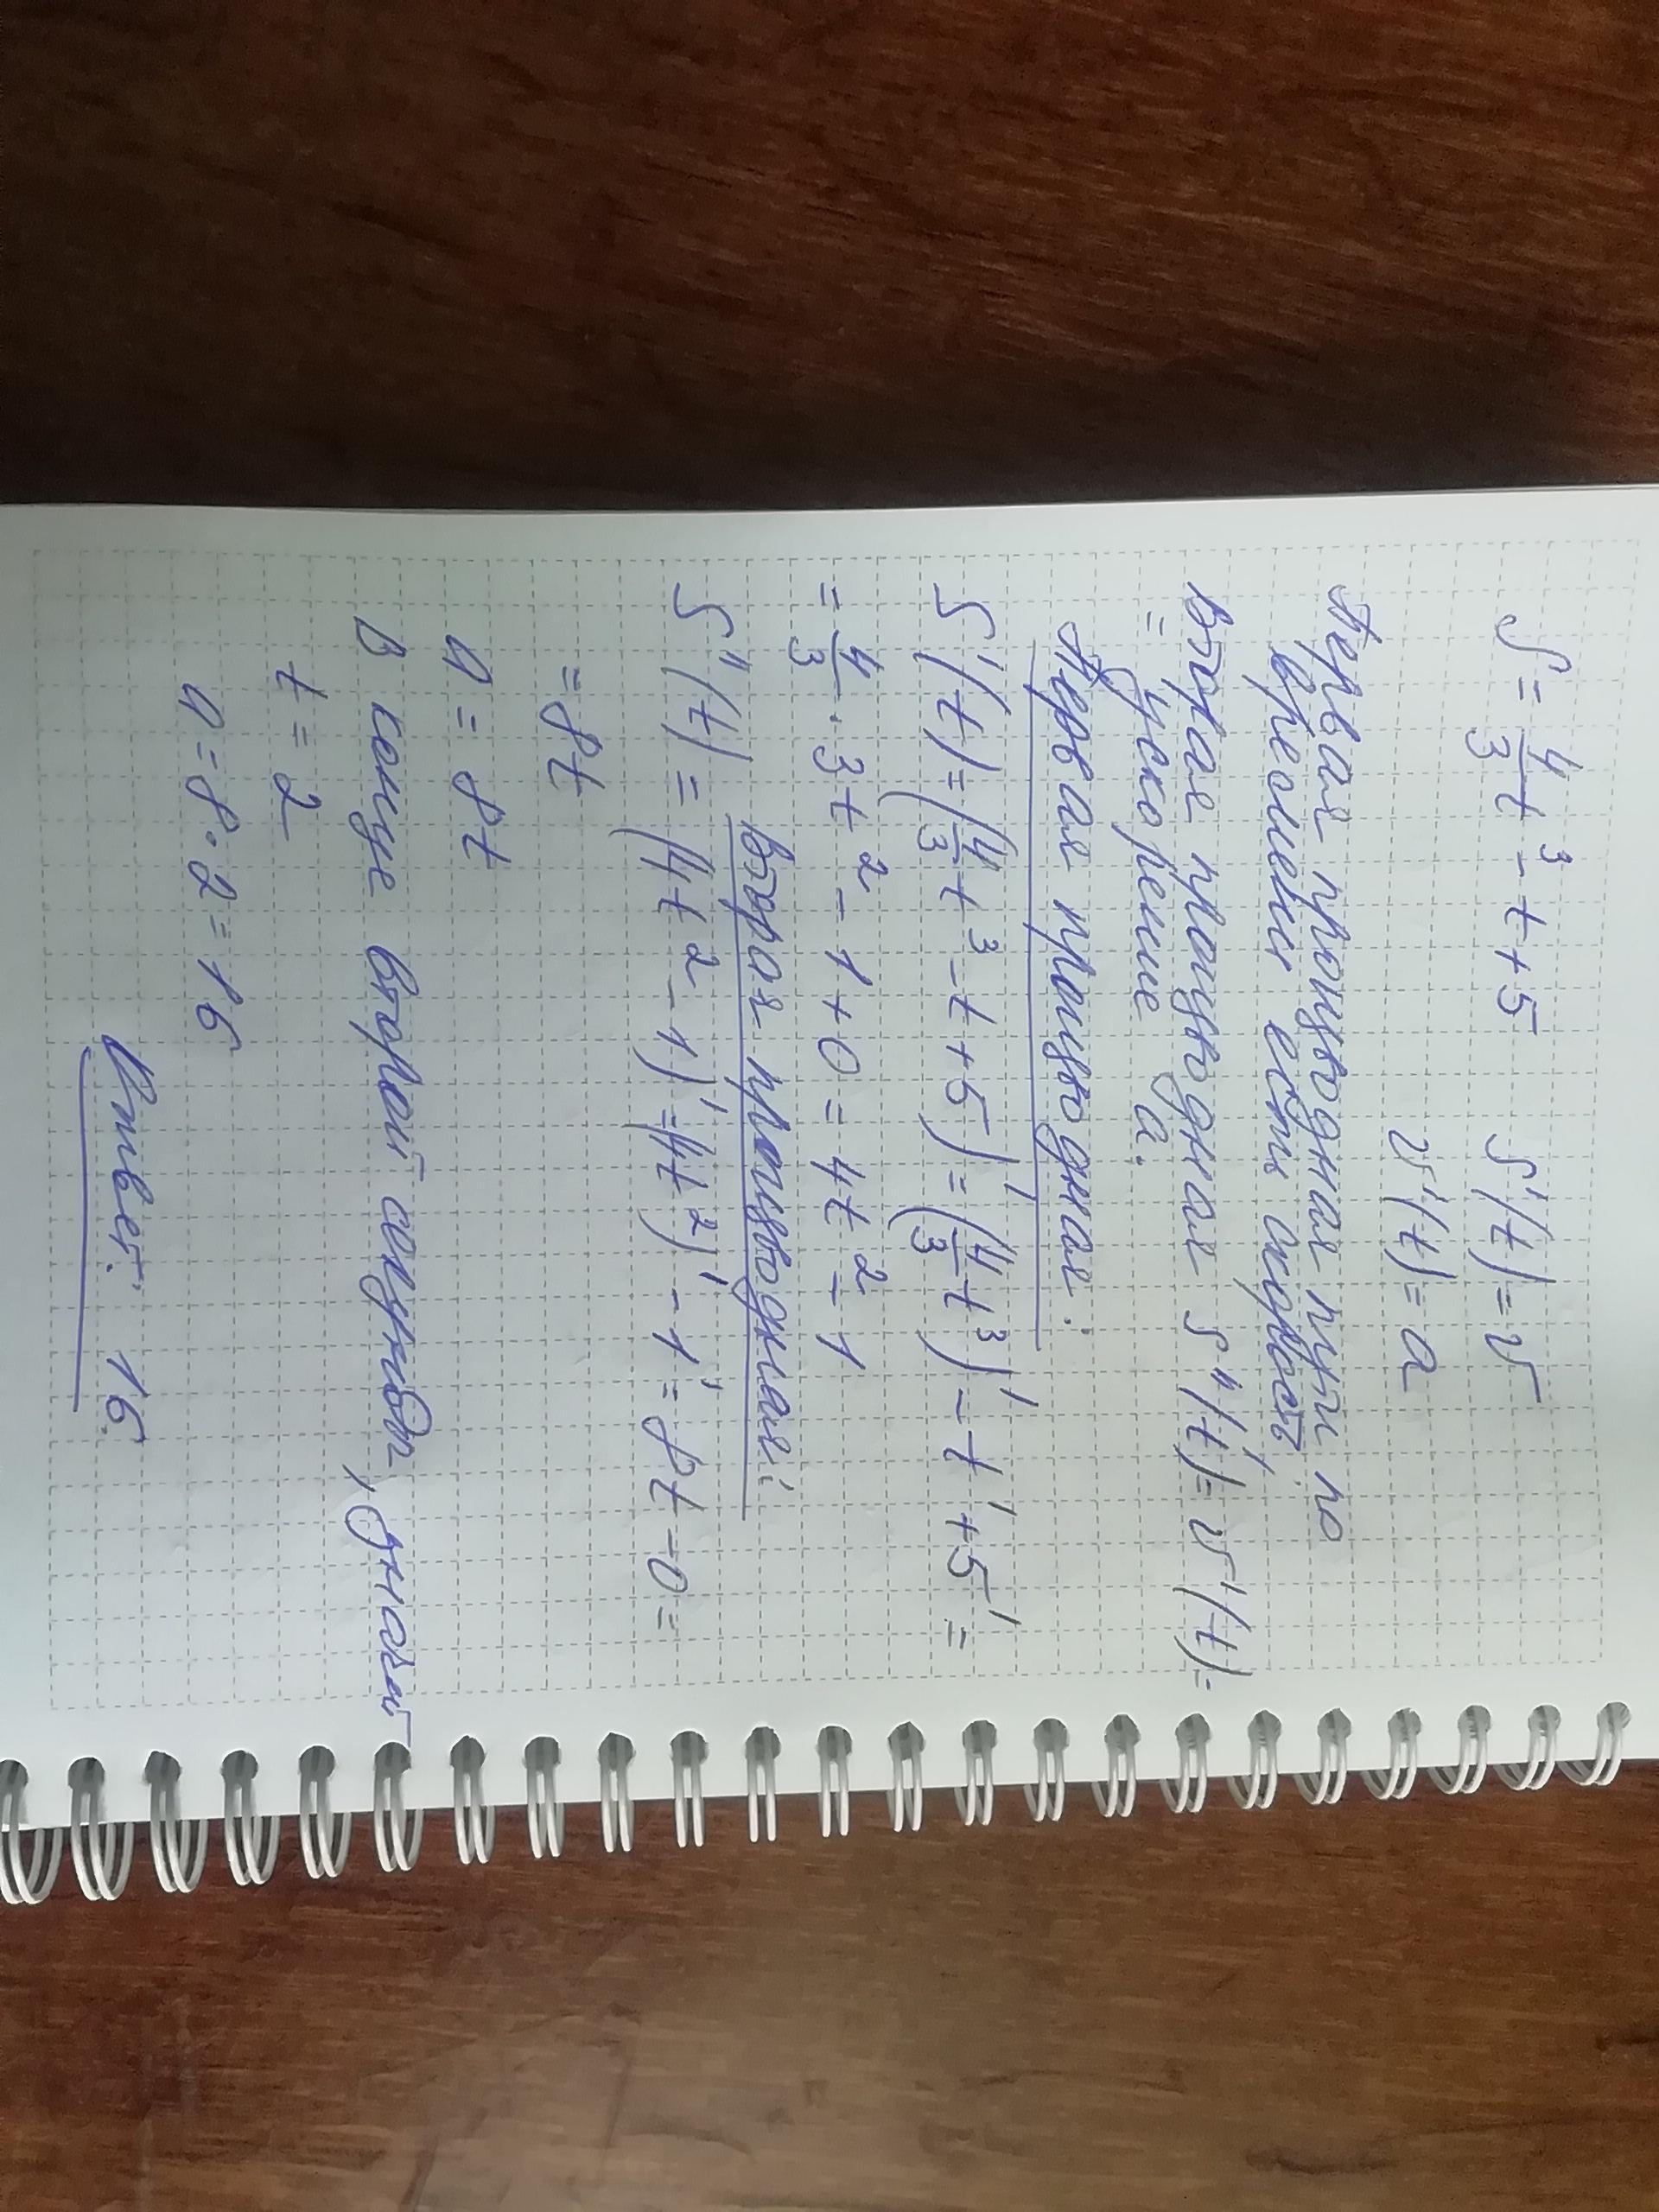 S = 4/3 t³ - t + 5 S'(t) = v
v'(t) = a
Первая производная пути по
времени есть скорость
Вторая производная S''(t) = v'(t) =
= ускорение a.
Первая производная:
S'(t) = (4/3 t³ - t + 5)' = (4/3 t³)' - t' + 5' =
= 4/3 · 3t² - 1 + 0 = 4t² - 1
Вторая производная:
S''(t) = (4t² - 1)' = (4t²)' - 1' = 8t - 0 =
= 8t
a = 8t
В конце второй секунды, значит
t = 2
a = 8 · 2 = 16
Ответ: 16.